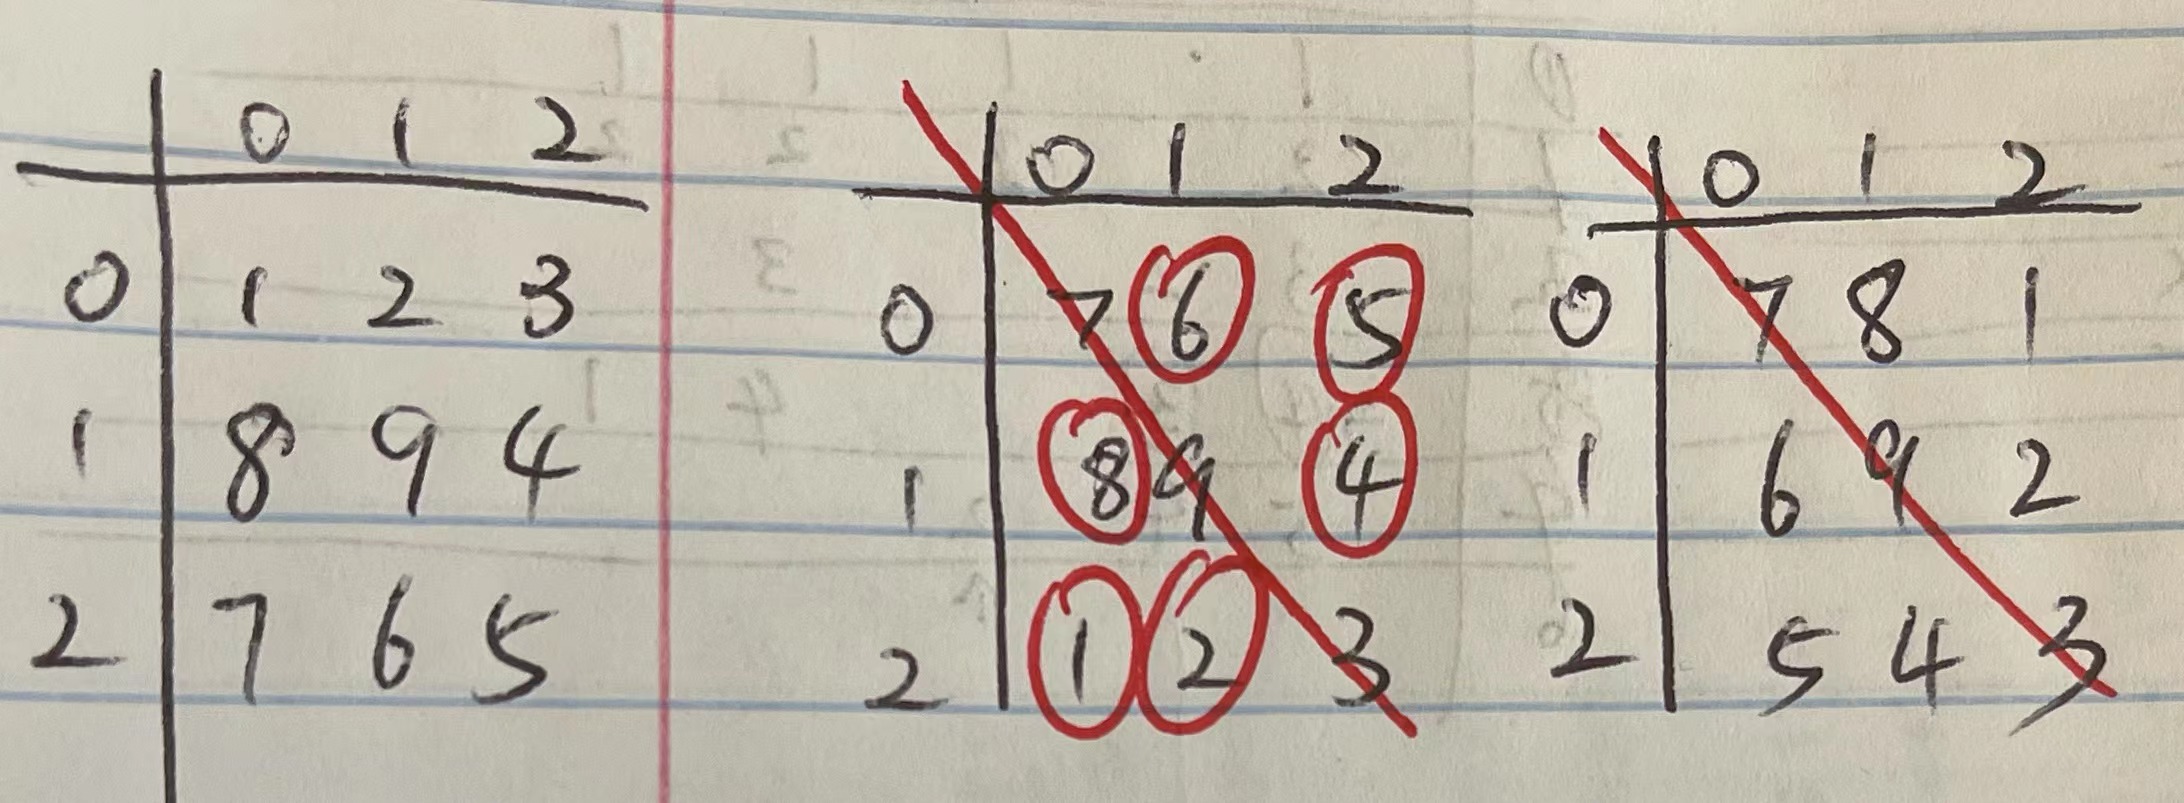 0 1 2
0 1 2 3
1 8 9 4
2 7 6 5
0 1 2
0 7 6 5
1 8 9 4
2 1 2 3
0 1 2
0 7 8 1
1 6 9 2
2 5 4 3